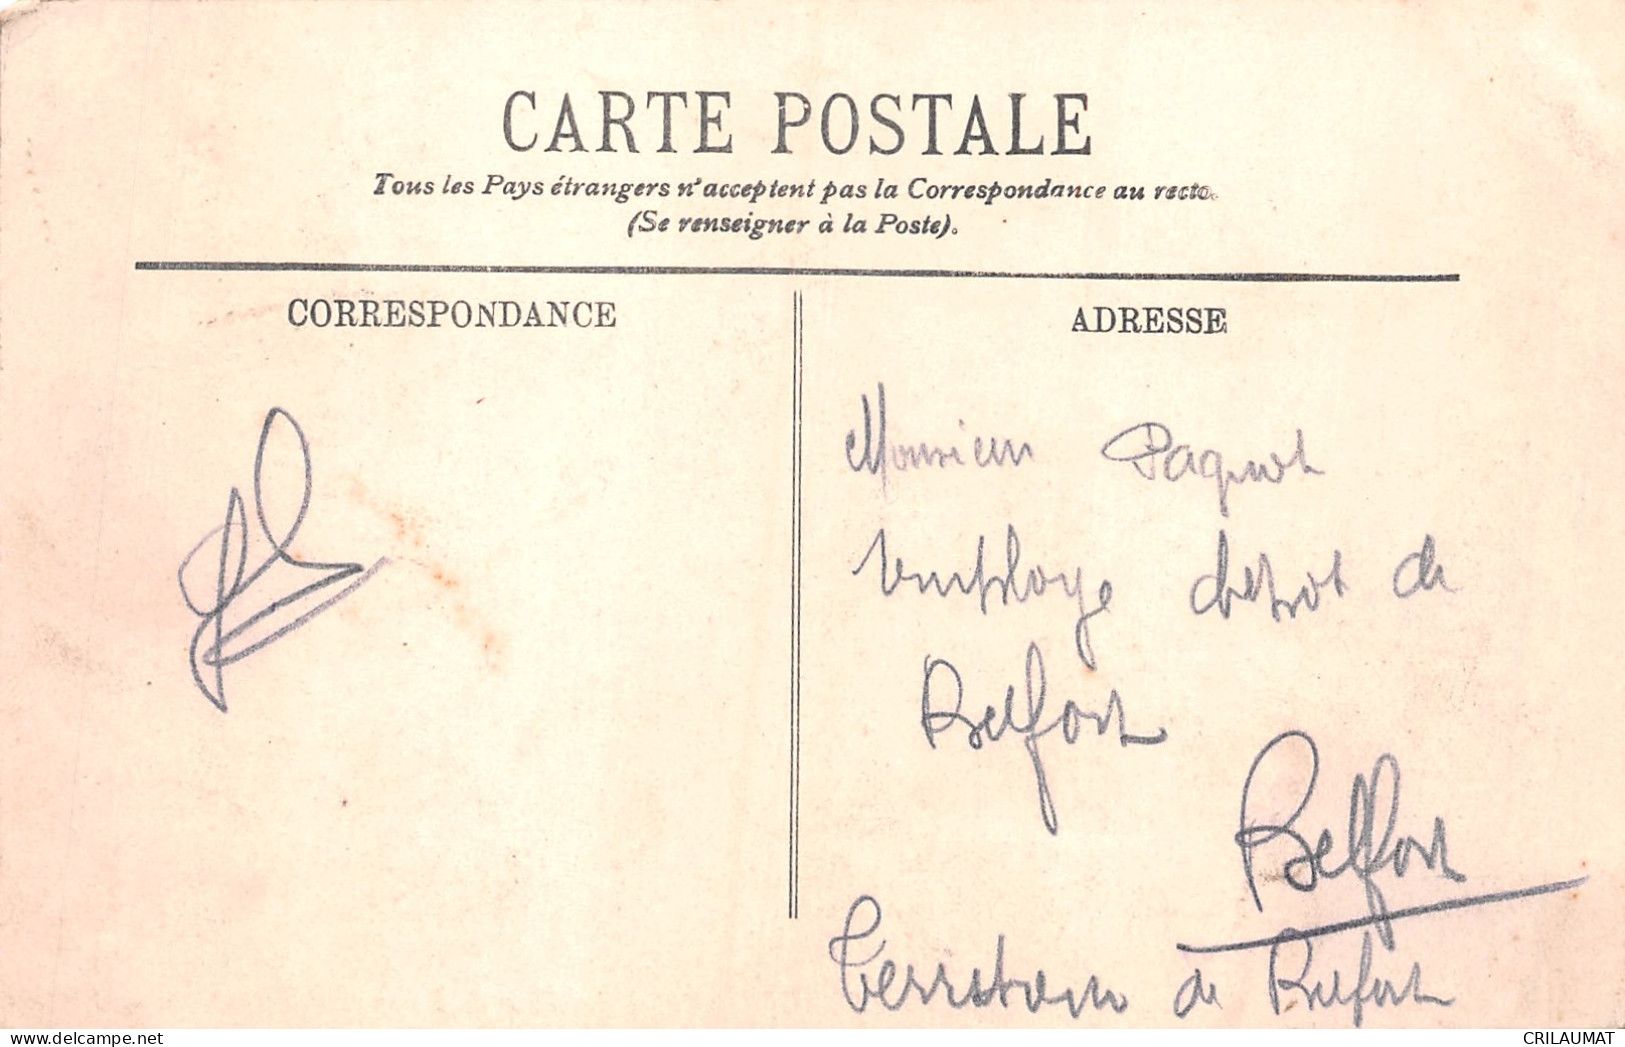 CARTE POSTALE
Tous les Pays étrangers n'acceptent pas la Correspondance au recto.
(Se renseigner à la Poste).
CORRESPONDANCE
ADRESSE
Monsieur Paquot
employe depot de
Belfort
Belfort
Territoire de Belfort
CRILAUMAT